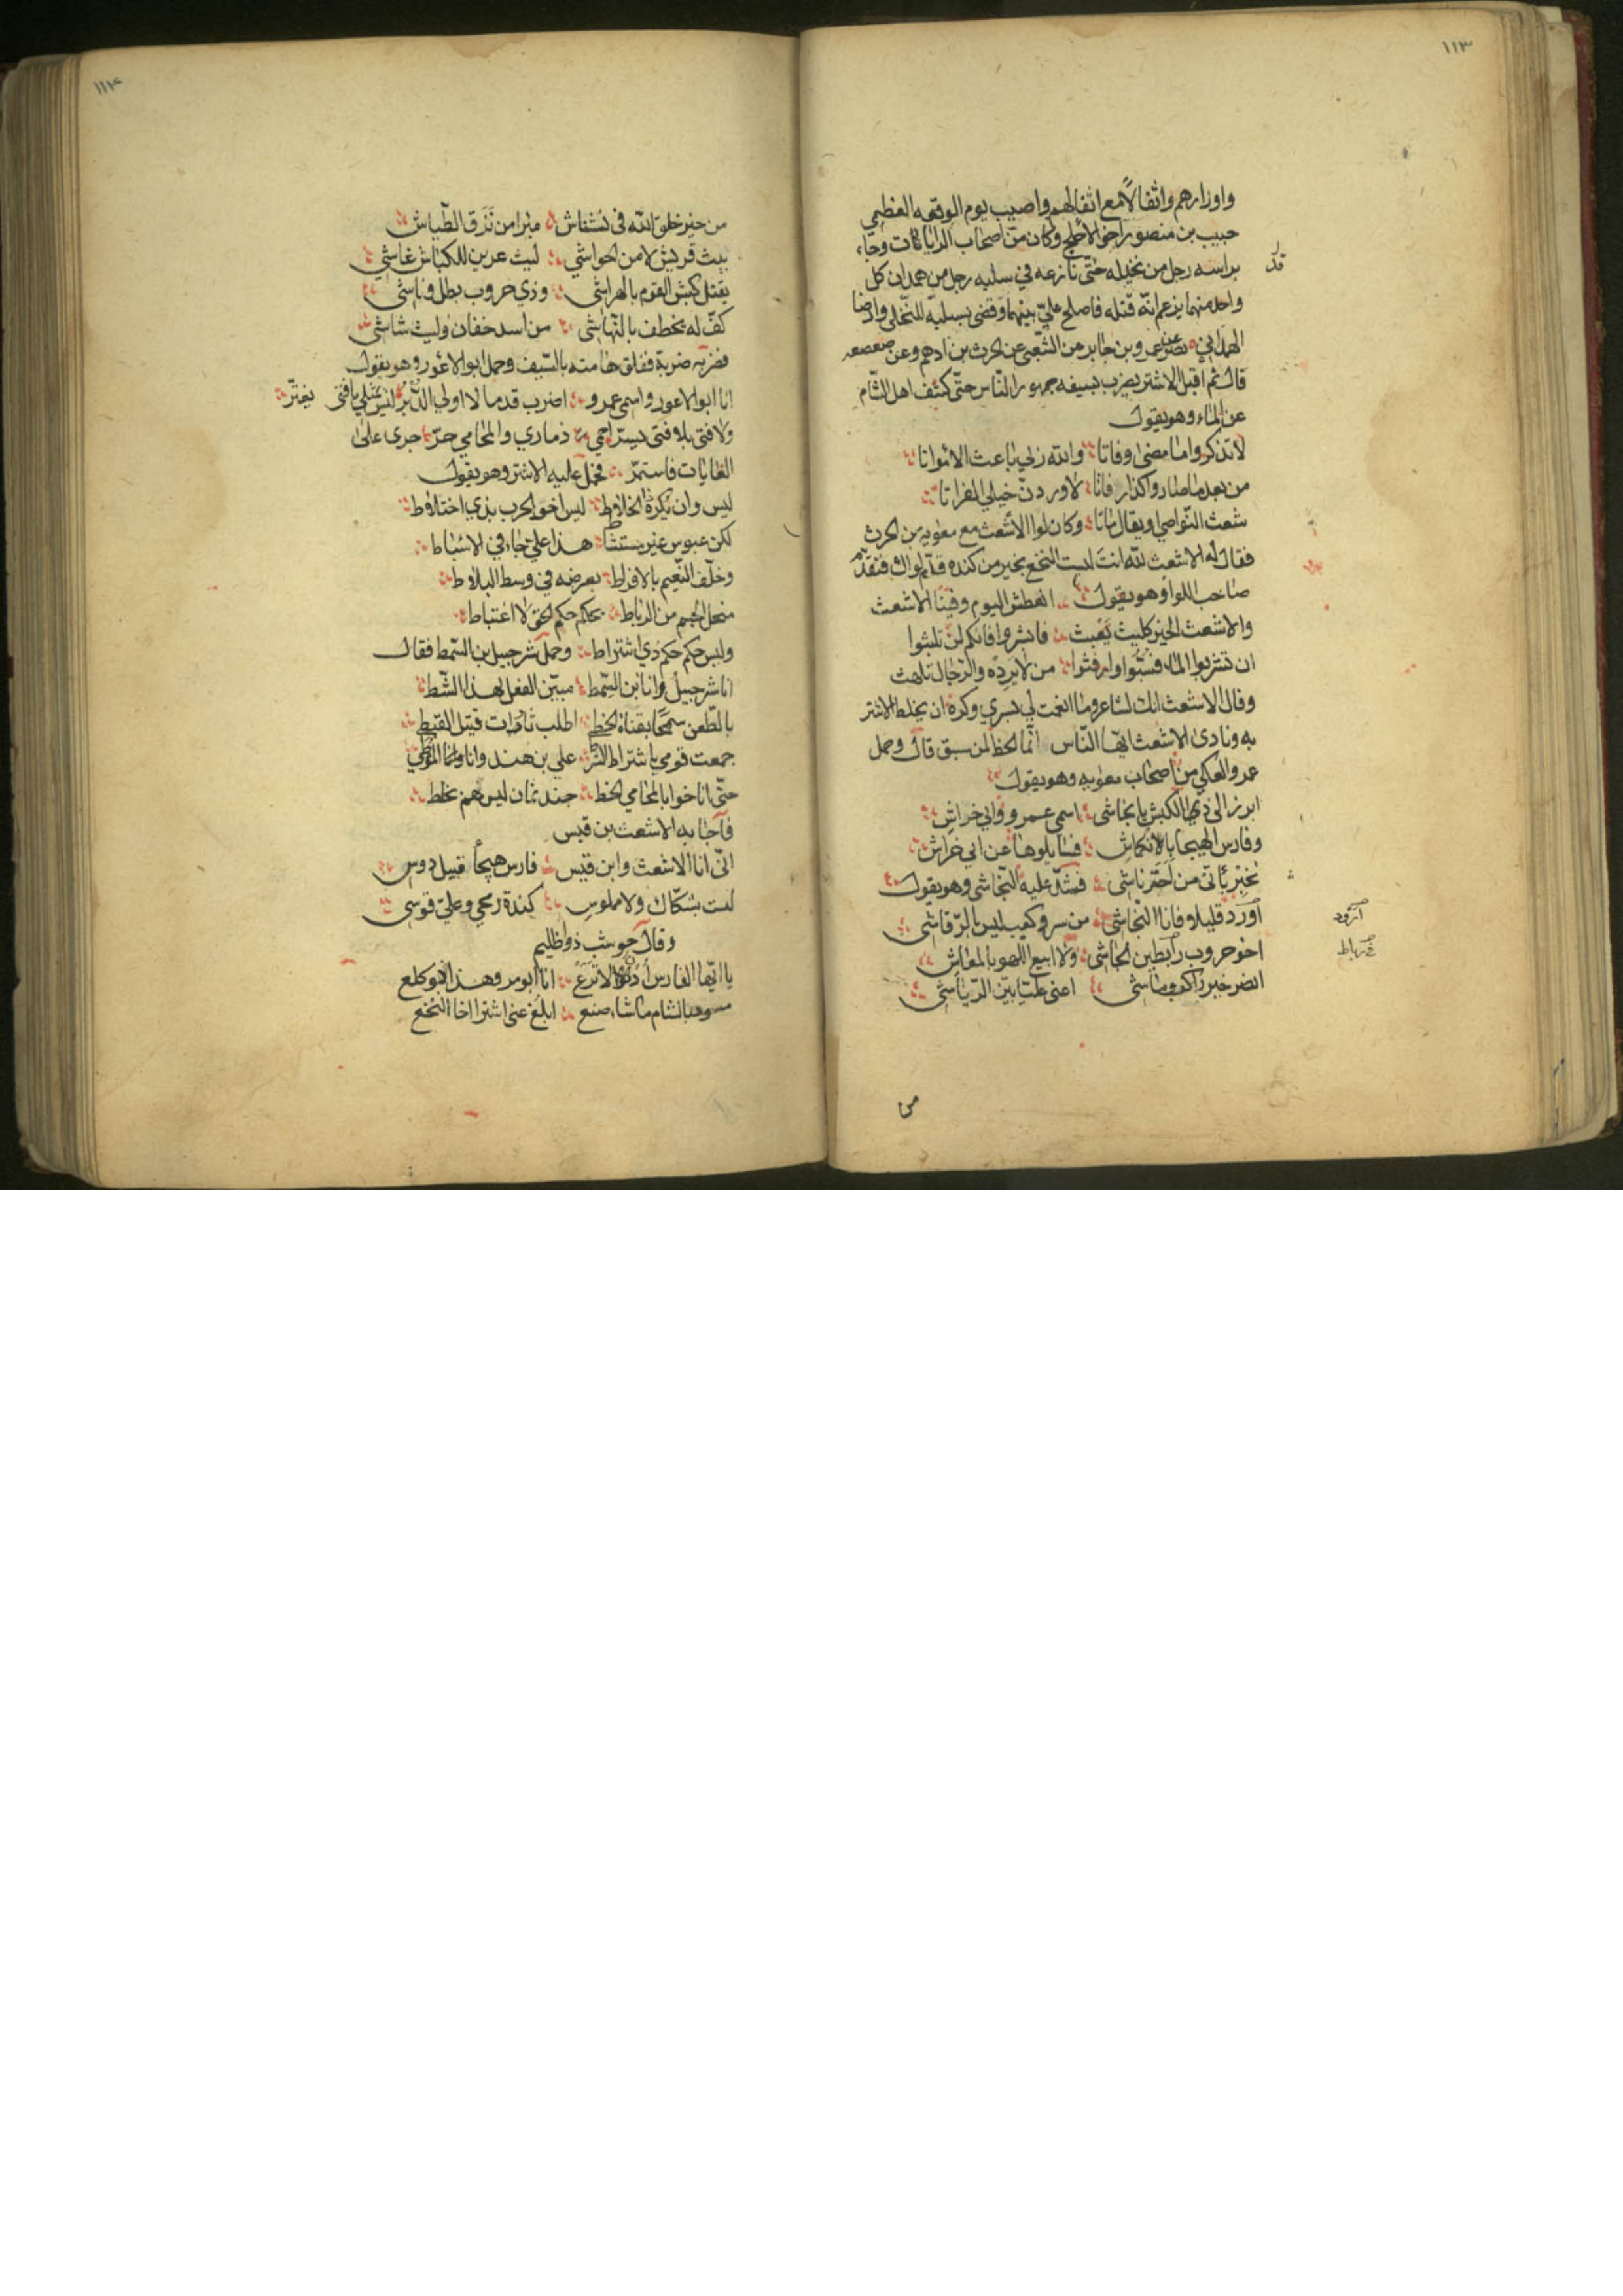 ١١٣
واوزارهم واثقالاً مع اثقالهم واصيب يوم الوقعه العظمي
حبيب بن منصور اخو الاجلح وكان من اصحاب الرايات وجاء
براسه رجل من بجيله حتّى نازعه في سلبه رجل من همدان كل
واحد منهما يزعم انّه قتله فاصلح عليّ بينهما وقضى بسلبه للبجلي وارضا
الهمداني نصر عن عمرو بن جابر عن الشّعبي عن الحرث بن ادهم وعن صعصعه
قال ثم اقبل الاشتر يضرب بسيفه جمهور النّاس حتّى كشف اهل الشّام
عن الماء وهو يقول
لا تذكروا ما مضى وفاتا والله ربي باعث الامواتا
من بعد ما صاروا كذا رفاتا لاوردنّ خيلي الفراتا
شعث النّواصي او يقال ماتا وكان لوا الاشعث مع معويه بن الحرث
فقال له الاشعث لله انت ليست النخع بخير من كنده قدّم لواك فتقدّم
صاحب اللوا وهو يقول انعطش اليوم وفينا الاشعث
والاشعث الخير كليث يعبث فابشروا فانكم لن تلبثوا
ان تشربوا الماء فسبّوا وارفثوا من لا يرده والرّجال تلهث
وقال الاشعث انك لشاعر وما انعمت لي بشري وكره ان يخلط الاشتر
به ونادى الاشعث ايّها النّاس انّما الحظ لمن سبق قال وحمل
عمرو العكي من اصحاب معويه وهو يقول
ابرز الى ذي الكبش يا نجاشي اسمي عمرو وابي خراش
وفارس الهيجا بالانكماش فسايلوها عن ابي خراش
تخبر باتي من احتر ناشي فشدّ عليه النّجاشي وهو يقول
اورد قليلا فانا النّجاشي من سرو كعب ليس بالرّقاشي
اخو حروب رابطين الجاشي ولا ابيع اللهو بالمعاش
انصر خير راكب وماشي اعني عليّا بيّن الرّياشي
من
١١٤
من خير خلق الله في نشناش مبرا من نزق الطّياش
بيت قريش لا من الحواشي ليث عرين للكباش غاشي
يقتل كبش القوم بالهراش وذي حروب بطل وناشي
كفّ له يخطف بالنّهاش من اسد خفان وليث شاشي
فضربه ضربة ففلق هامته بالسّيف وحمل ابو الاعور وهو يقول
انا ابو الاعور واسمي عمرو اضرب قدما لا اولي الدّبر ليس مثلي يا فتى يغترّ
ولا فتى يلاقني يسر احمي ذماري والمحامي حرّ جرى على
الغايات فاستمرّ فحمل عليه الاشتر وهو يقول
ليس وان نكره الخلاط ليس اخو الحرب بذي اختلاط
لكن عبوس غير مستشاط هذا عليّ جاء في الاسباط
وخلّف النّعيم بالافراط بعرصه في وسط البلاط
منحل الجسم من الرباط يحكم حكم الحق لا اغتباط
وليس حكم حكم ذي اشتراط وحمل شرحبيل بن السّمط فقال
انا شرحبيل وانا ابن السّمط مبيّن الفعل لهذا الشّط
بالطّعن سمحا بقناة الخط اطلب ثارات قتيل القبط
جمعت قومي باشتراط الشّرط علي بن هند وانا
حتّى اناخوا بالمحامي الخط جند يمان ليس هم بخلط
فاجابه الاشعث بن قيس
انّي انا الاشعث وابن قيس فارس هيجا قبيل دوس
لست بشكّاك ولا مملوس كندة رمحي وعليّ قوسي
وقال حوشب ذو ظليم
يا ايّها الفارس ادن لا ترع انا ابو مر وهذا ذو كلع
مسود بالشام ما شاء صنع ابلغ عني اشترا اخا النخع